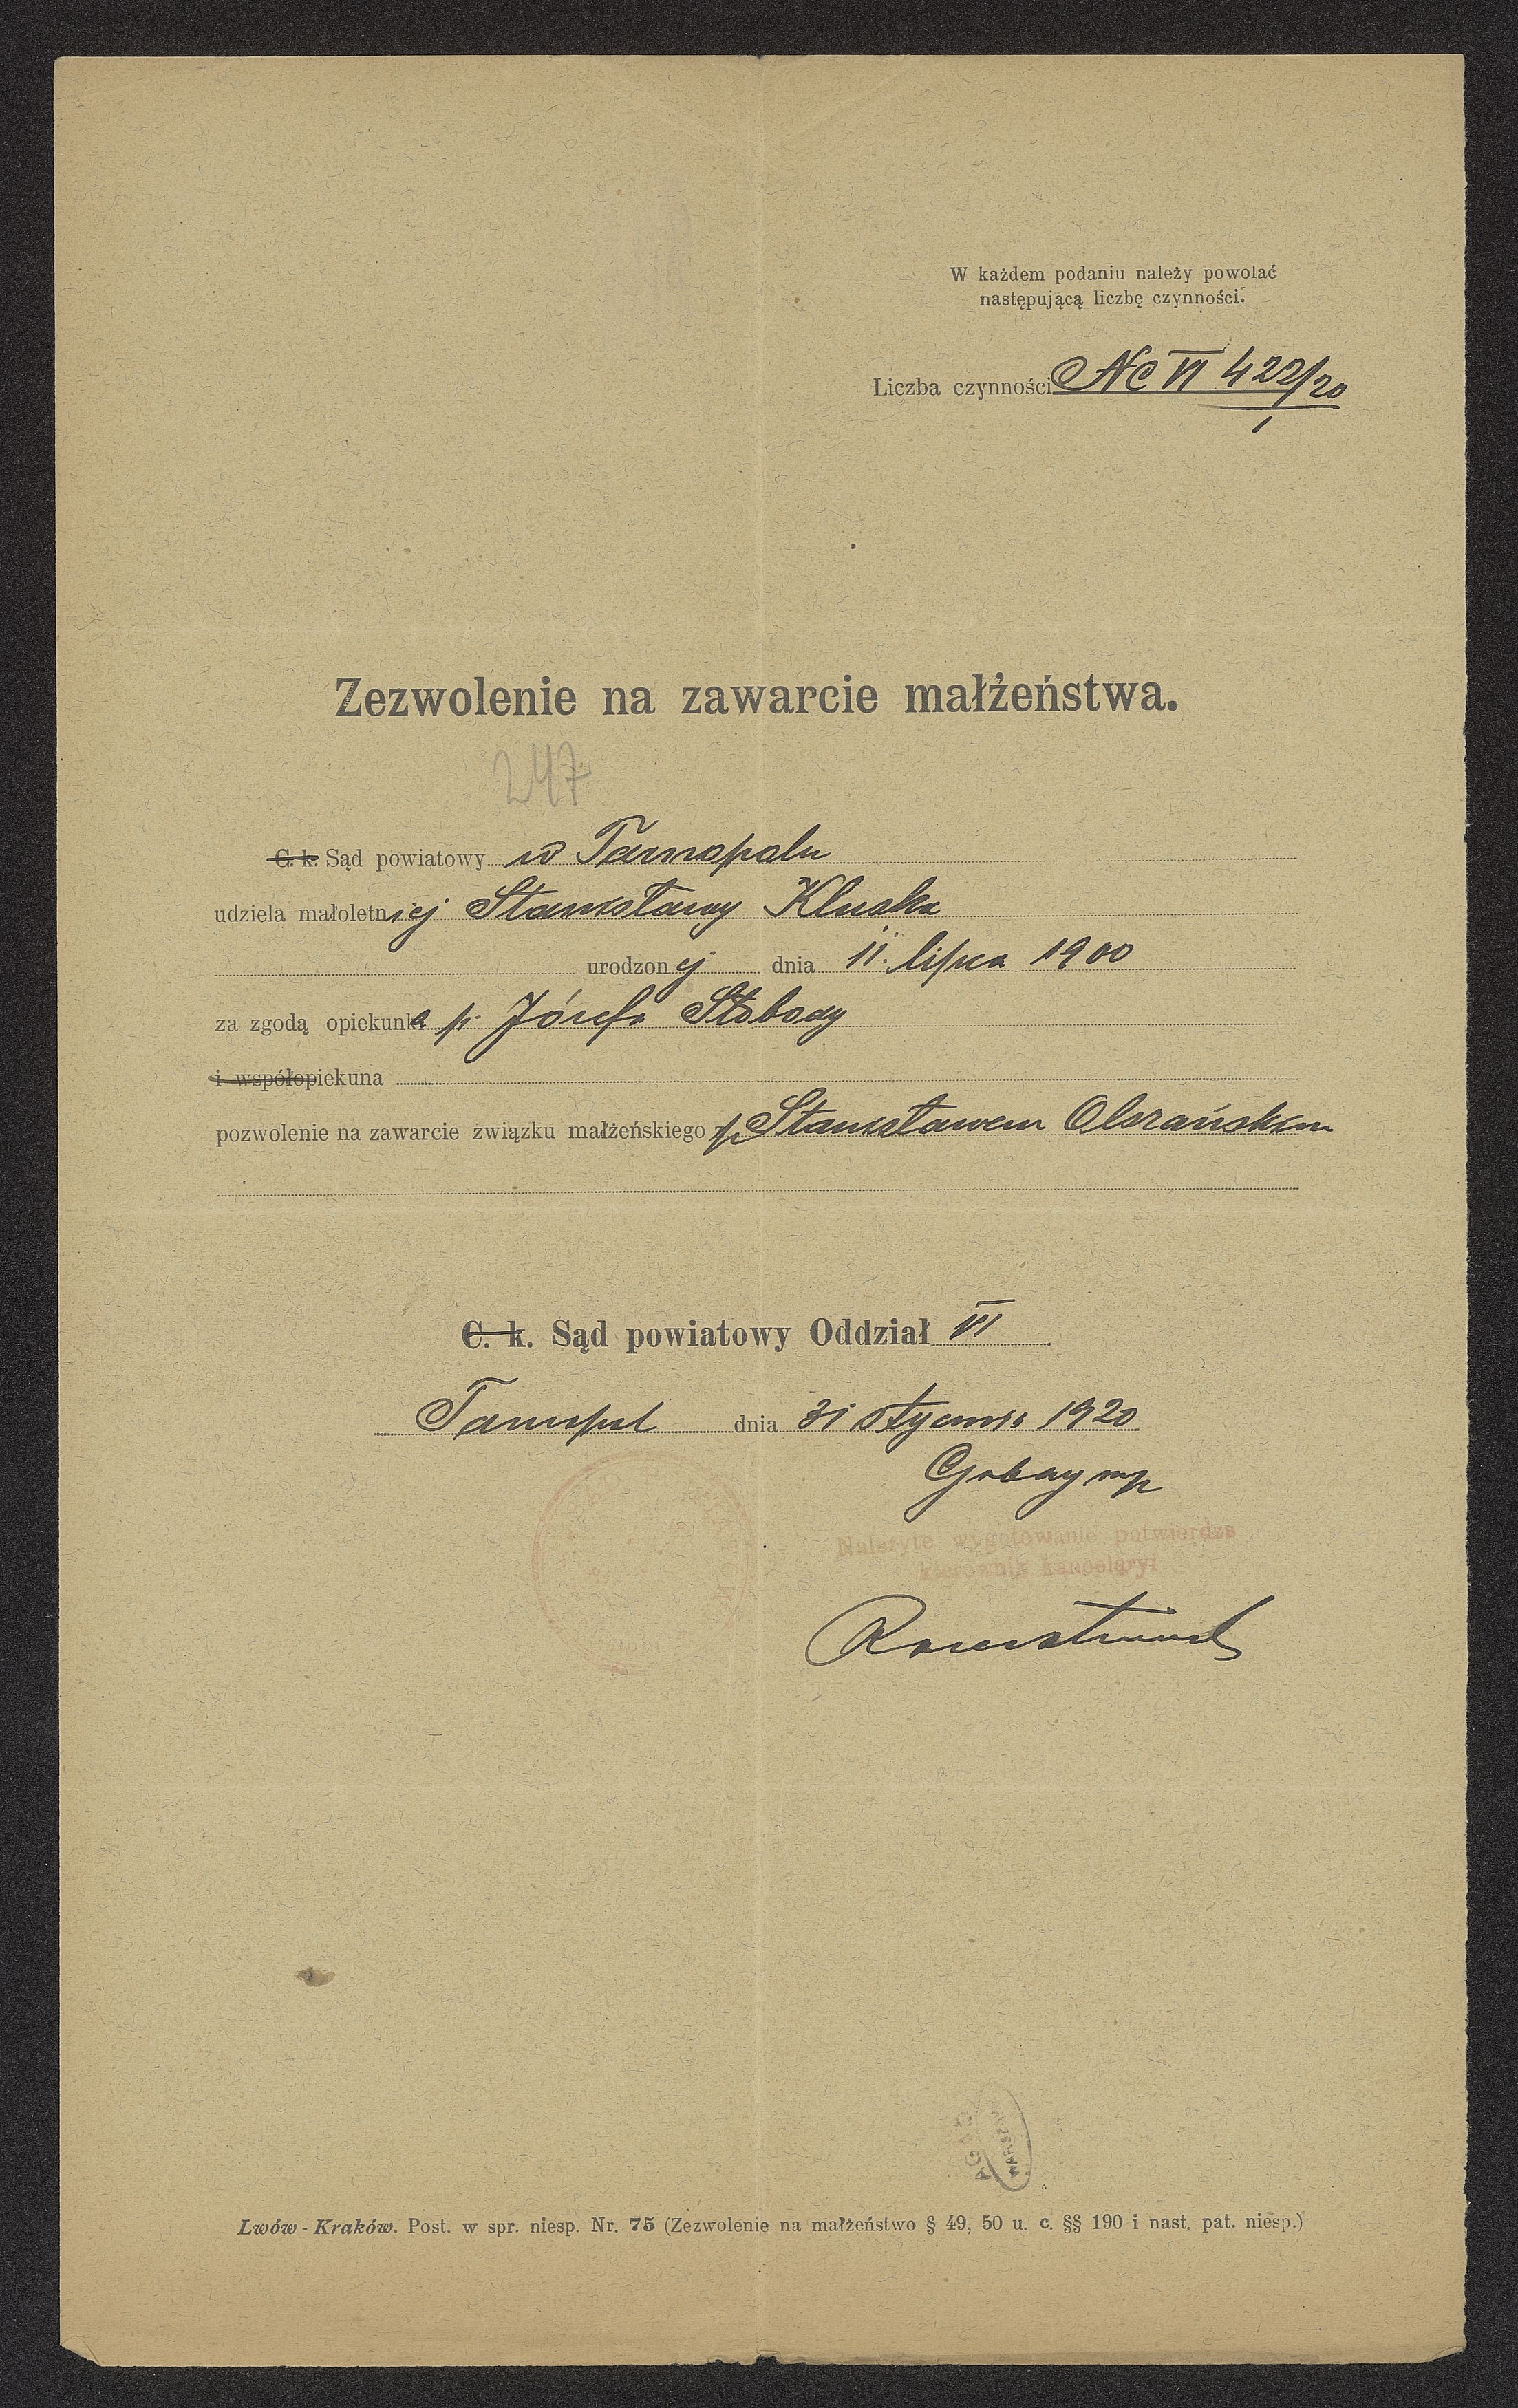 W każdem podaniu należy powołać
następującą liczbę czynności.
Liczba czynności Nc VI 422/20
1
Zezwolenie na zawarcie małżeństwa.
247
C. k. Sąd powiatowy w Tarnopolu
udziela małoletniej Stanisławy Kluska
urodzonej dnia 11. lipca 1900
za zgodą opiekuna p. Józefa Słobody
i współopiekuna
pozwolenie na zawarcie związku małżeńskiego z p. Stanisławem
C. k. Sąd powiatowy Oddział VI
Tarnopol dnia 31 stycznia 1920
mp
Należyte wygotowanie potwierdza
kierownik kancelaryi
AGAD
WARSZAWA
Lwów - Kraków. Post. w spr. niesp. Nr. 75 (Zezwolenie na małżeństwo § 49, 50 u. c. §§ 190 i nast. pat. niesp.)